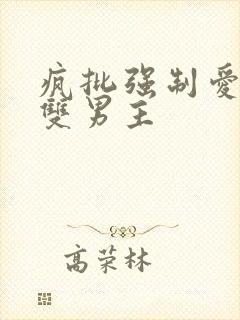 疯批强制爱
雙男主
高荣林